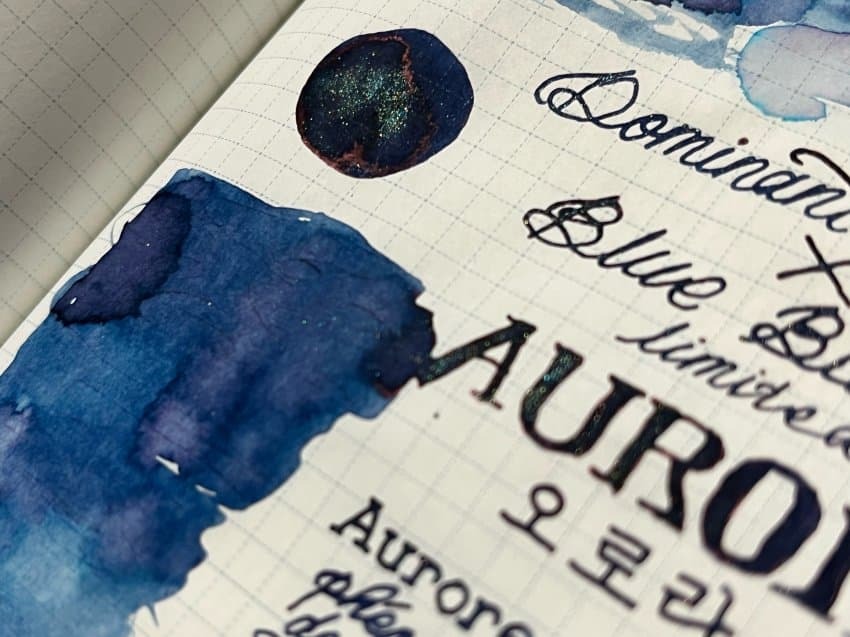 Dominant
X
Blue Bl
limited
AURO
오로라
Aurore
phén